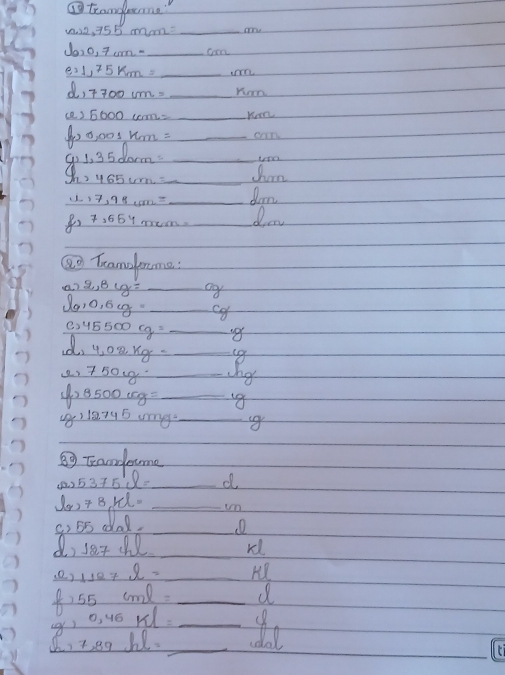 1º Transforme:
a) 2,755 mm = ______ m
b) 0,7 m = ______ cm
c) 1,75 Km = ______ m
d) 7700 m = ______ Km
e) 5000 cm = ______ Km
f) 0,001 Km = ______ cm
g) 1,35 dam = ______ m
h) 465 m = ______ hm
i) 7,98 m = ______ dm
j) 7,554 mm = ______ dm
2º Transforme:
a) 2,8 g = ______ cg
b) 0,6 g = ______ cg
c) 45500 cg = ______ g
d) 4,02 Kg = ______ g
e) 750 g = ______ hg
f) 8500 cg = ______ g
g) 12745 mg = ______ g
3º Transforme
a) 5375 l = ______
b) 78 Kl = ______ m
c) 55 dal = ______ l
d) 127 hl ______ Kl
e) 1127 l = ______ Kl
f) 55 ml = ______ l
g) 0,46 Kl = ______ l
h) 7,89 hl = ______ dal
ti